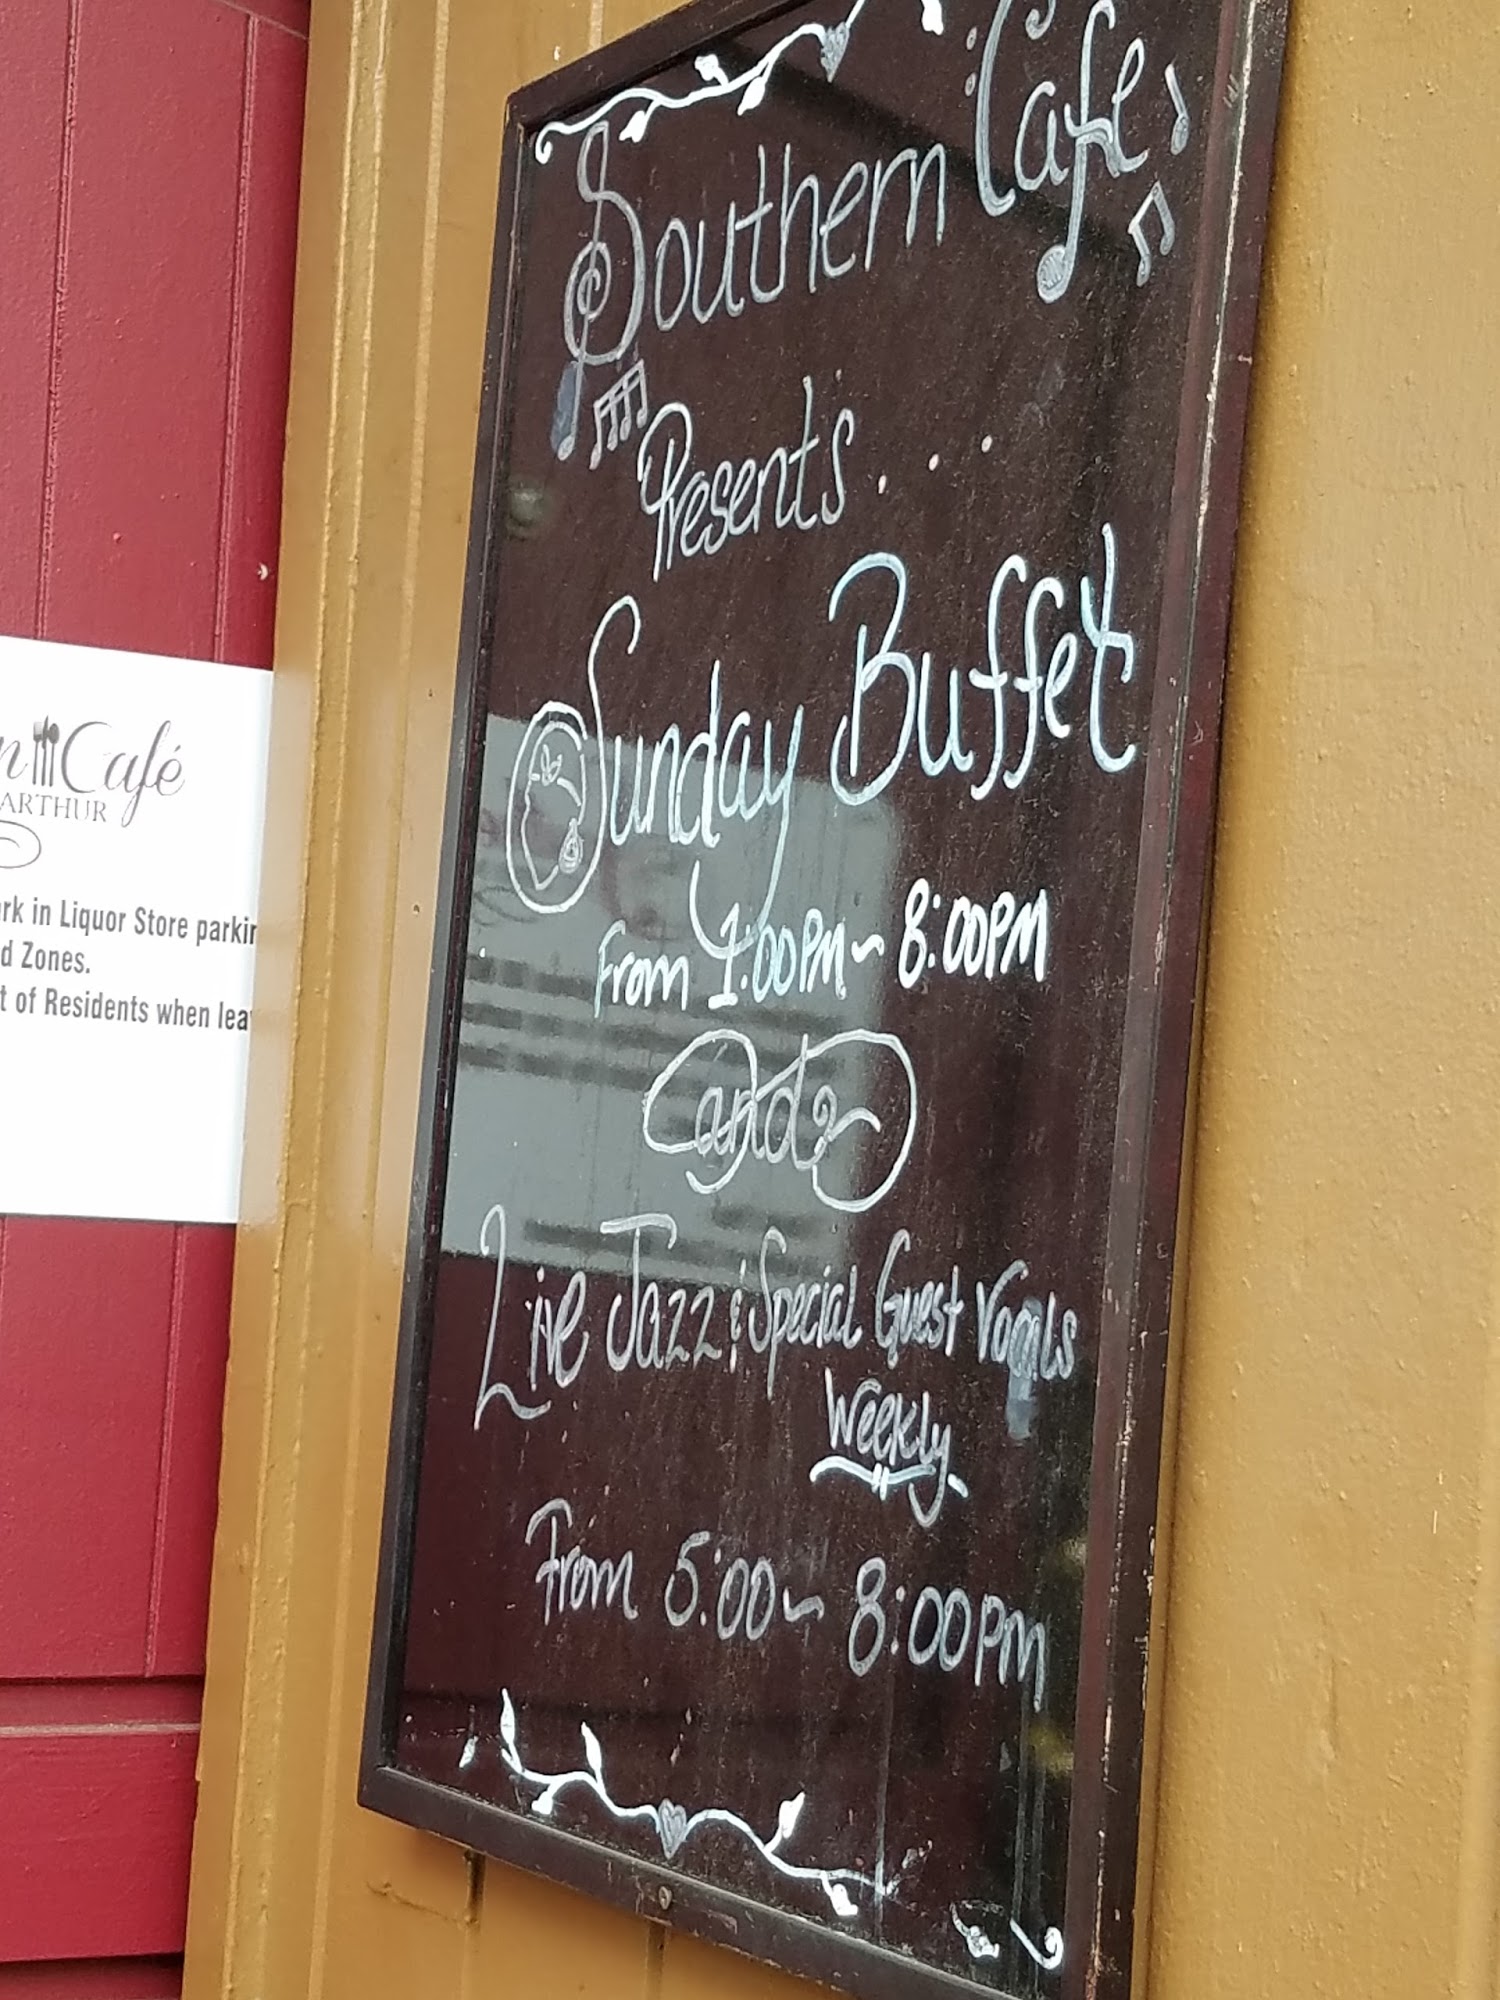 Southern Cafe
Presents...
Sunday Buffet
From 1:00PM ~ 8:00PM
and
Live Jazz & Special Guest Vocals
Weekly
From 5:00 ~ 8:00PM
n Café
ARTHUR
rk in Liquor Store parkin
d Zones.
t of Residents when lea